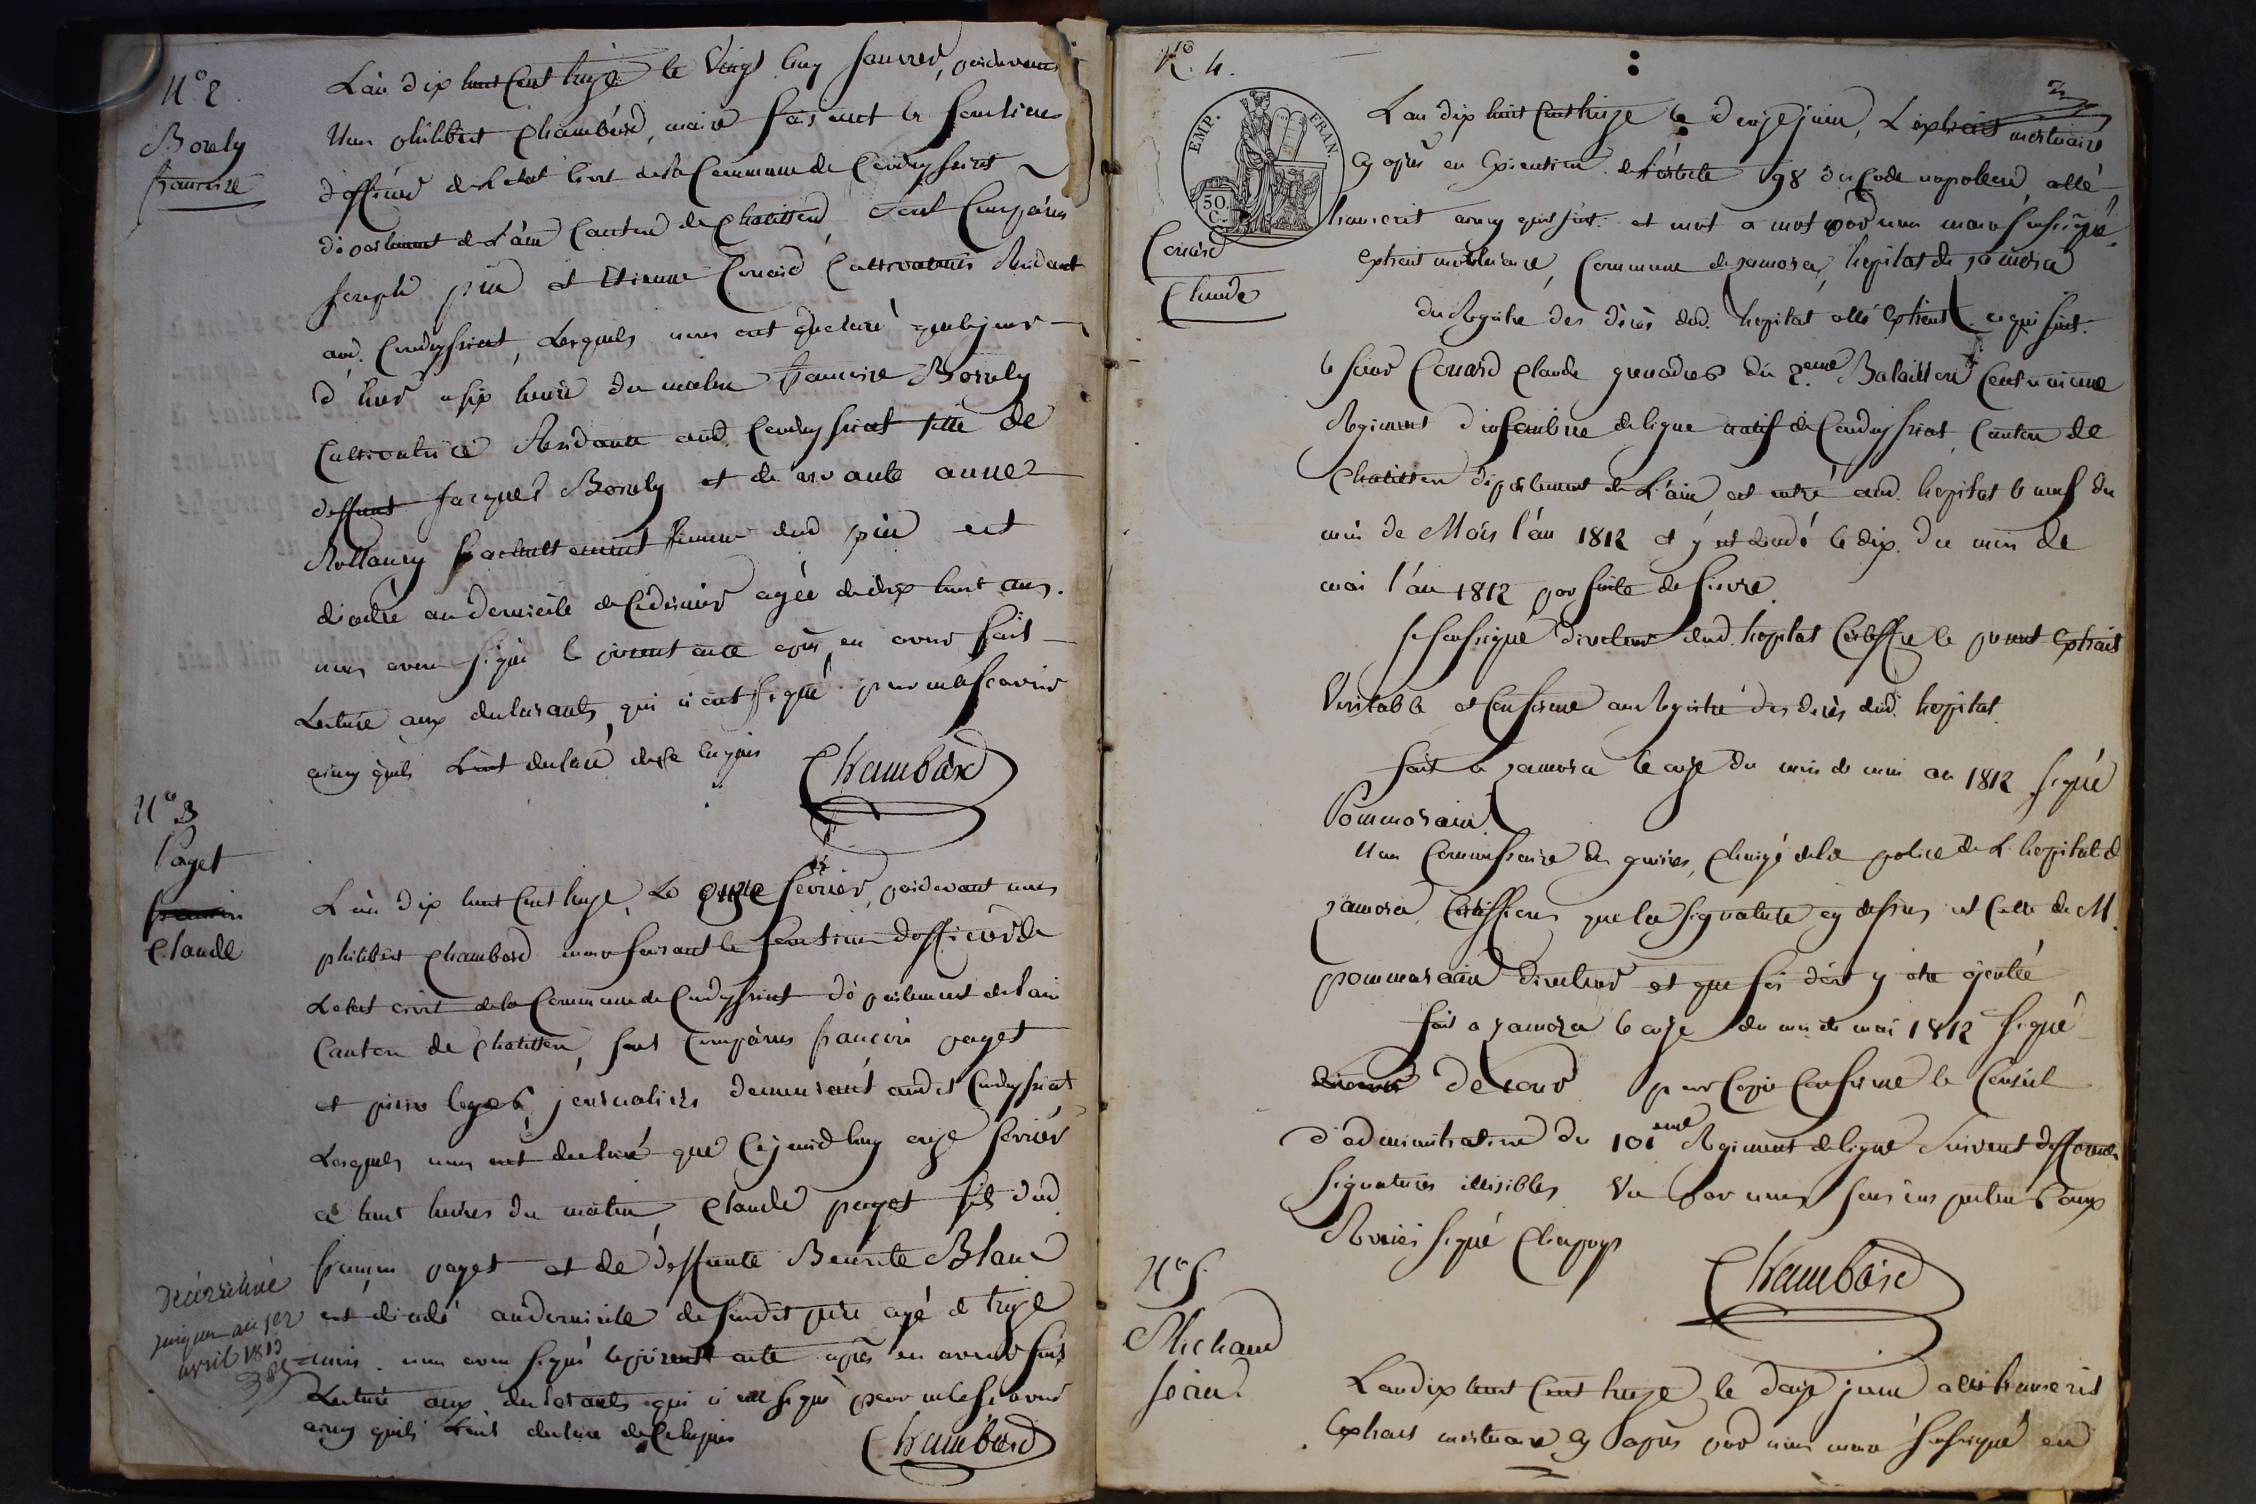 N° 2.
Borely
francoise
L'an dix huit cent treize le vingt huy janvier, pardevant
Nous philibert Chambard, maire faisant les fonctions
d'officier de L'etat Civil de la Commune de Condeyssiat
département de L'ain Canton de Chatillon, sont Comparus
Joseph pin et Etienne Conard Cultivateurs Residant
aud. Condeyssiat, Lesquels nous ont declaré que le jour
d'hier a six heure du matin francoise Borely
Cultivatrice Residante aud. Condeyssiat fille de
deffunt Jacques Borely et de vivante anne
Rollancy femme dud pin est
décédée au domicile de ce dernier agée de dix huit ans.
nous avons signé le present acte après en avoir fait
Lecture aux declarants, qui n'ont signé pour ne scavoir
ainsy qu'ils L'ont declaré de ce enquis
Chambard
N° 3
Paget
Claude
L'an dix huit cent treize, Le onze fevrier, pardevant nous
philibert Chambard maire faisant les fonctions d'officier de
L'etat civil de la Commune de Condeyssiat département de L'ain
Canton de Chatillon, sont Comparus francois paget
et pierre leger, journaliers demeurant audit Condeyssiat
Lesquels nous ont declaré que Cejourd'huy onze fevrier
a huit heures du matin, Claude paget fils dud.
françois paget et de deffunte Benoite Blanc
est décédé au domicile de sondit père agé de treize
mois. nous avons signé le présent acte après en avoir fait
Lecture aux declarants qui n'ont signé pour ne le scavoir
ainsy qu'ils L'ont declaré de ce enquis
Chambard
jusques au 1er
avril 1813
N. 4.
EMP. FRAN.
50. C.
Conard
Claude
L'an dix huit cent treize le douze juin, L'extrait mortuaire
cy après en Execution de L'article 98 du Code napoleon a été
transcrit ainsy qu'il suit. et mot a mot par nous maire soussigné.
Extrait mortuaire, Commune de zamora, hopital de zamora
du Registre des décès dud. hopital a été Extrait ce qui suit.
le sieur Conard Claude grenadier du 2eme Bataillon Cent unieme
Regiment d'infanterie de ligne natif de Condeyssiat Canton de
Chatillon département de L'ain, est entré aud. hopital le neuf du
mois de Mars l'an 1812 et y est décédé le dix du mois de
mai l'an 1812 par suite de fievre.
Je soussigné directeur dud. hopital Certiffie le present Extrait
Veritable et Conforme au Registre des décès dud. hopital.
fait a zamora le onze du mois de mai an 1812 signé
Pommorain.
Nous Commissaire des guerres, Chargé de la police de L'hopital de
zamora, Certiffions que la signature cy dessus est Celle de M.
pommorain directeur et que foi doit y etre ajoutée
fait a zamora le onze du mois de mai 1812 signé
pour Copie Conforme le Conseil
d'administration du 101eme Regiment de ligne suivent differentes
signatures illisibles. Vu par nous sous inspecteur aux
Revues signé Chapuys
Chambard
N° 5.
Michaud
L'an dix huit cent treize, le douze juin a été transcrit
Lextrait mortuaire cy après par nous maire soussigné en